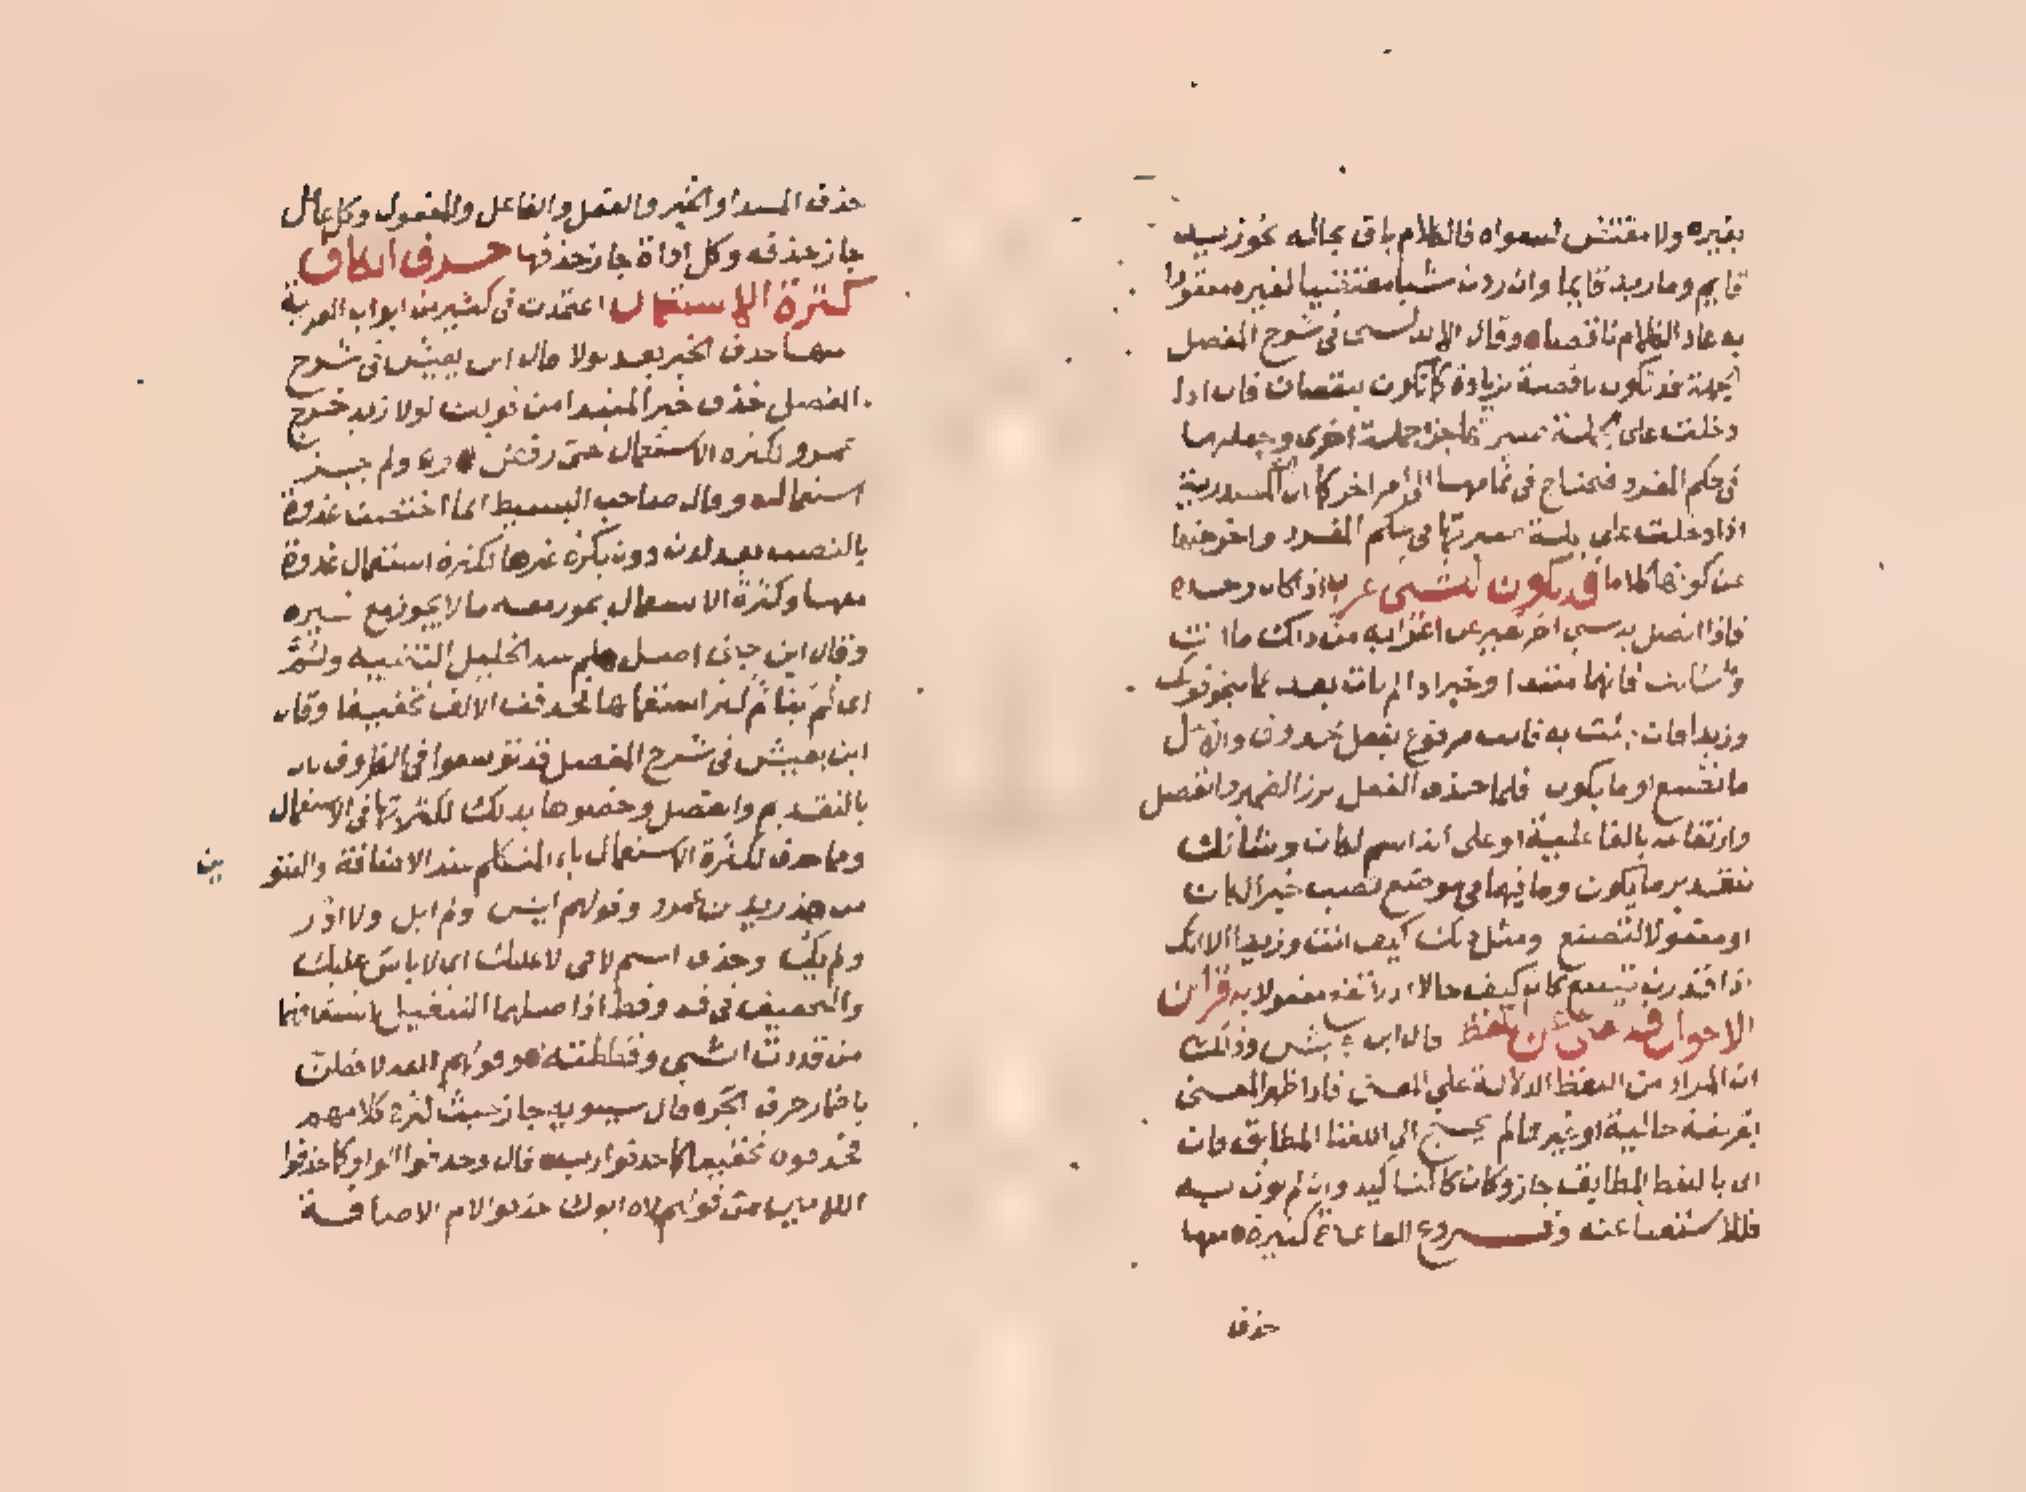 بغيره ولا مقتض لسواه فالكلام باق بحاله نحو زيد
قايم وما زيد قايما وان زدت شيا مقتضيا لغيره معقودا
به عاد الكلام ناقصا وقال الاندلسى فى شرح المفصل
الجملة قد تكون ناقصة بزيادة كما تكون بنقصان فان اذا
دخلت على جملة صيرتها جزء جملة اخرى وجعلتها
فى حكم المفرد فتحتاج فى تمامها الى امر اخر كما ان المصدرية
اذا دخلت على جملة صيرتها فى حكم المفرد واخرجتها
عن كونها كلاما قد يكون للشىء اعراب اذا كان وحده
فاذا اتصل به شىء اخر تغير عن اعرابه من ذلك ما انت
وشانك فانهما مبتدا وخبر اذا لم تات بعد بما نحو قولك
وزيدا فان جئت به فانت مرفوع بفعل محذوف والاصل
ما تصنع او ما يكون فلما حذف الفعل برز الضمير وانفصل
وارتفاعه بالفاعلية او على انه اسم لكان وشانك
بتقدير ما يكون وما فيهما فى موضع نصب خبر الكان
او مفعولا لتصنع ومثل ذلك كيف انت وزيدا الا انك
اذا قدرت تصنع كان كيف حالا اذ لا تقع مفعولا به قراين
الاحوال قد تغنى عن اللفظ قال ابن يعيش وذلك
ان المراد من اللفظ الدلالة على المعنى فاذا ظهر المعنى
بقرينة حالية او غيرها لم يحتج الى اللفظ المطابق فان
اتى باللفظ المطابق جاز وكان كالتاكيد وان لم يوت به
فللاستغنا عنه وفروع القاعدة كثيرة منها
حذف
حذف المبتدا والخبر والفعل والفاعل والمفعول وكل عامل
جاز حذفه وكل اداة جاز حذفها حرف الكاف
كثرة الاستعمال اعتمدت فى كثير من ابواب العربية
منها حذف الخبر بعد لولا قال ابن يعيش فى شرح
المفصل حذف خبر المبتدا من قولك لولا زيد خرج
عمرو لكثرة الاستعمال حتى رفض ولم يجز
استعماله وقال صاحب البسيط انما اختصت غدوة
بالنصب بعد لدن دون بكرة وغيرها لكثرة استعمال غدوة
معها وكثرة الاستعمال يجوز معه ما لا يجوز مع غيره
وقال ابن جنى اصل هلم عند الخليل التنبيه ولم
اى لم بنا ثم كثر استعمالها فحذفت الالف تخفيفا وقال
ابن يعيش فى شرح المفصل قد توسعوا فى الظروف
بالتقديم والفصل وخصوها بذلك لكثرتها فى الاستعمال
ومما حذف لكثرة الاستعمال ياء المتكلم عند الاضافة والتنو
ين
من هذ زيد بن عمرو وقولهم ايش ولم ابل ولا ادر
ولم يك وحذف اسم لا فى لا عليك اى لا باس عليك
والتخفيف فى قد وقط اذا صلهما التثقيل باشتقاقهما
من قددت الشىء وقططته وقولهم الله لافعلن
باضمار حرف الجر قال سيبويه جاز حيث كثر فى كلامهم
فحذفوه تخفيفا كما حذفوا رب قال وحذفوا الواو كما حذفوا
اللامين من قولهم لاه ابوك حذفوا لام الاضافة